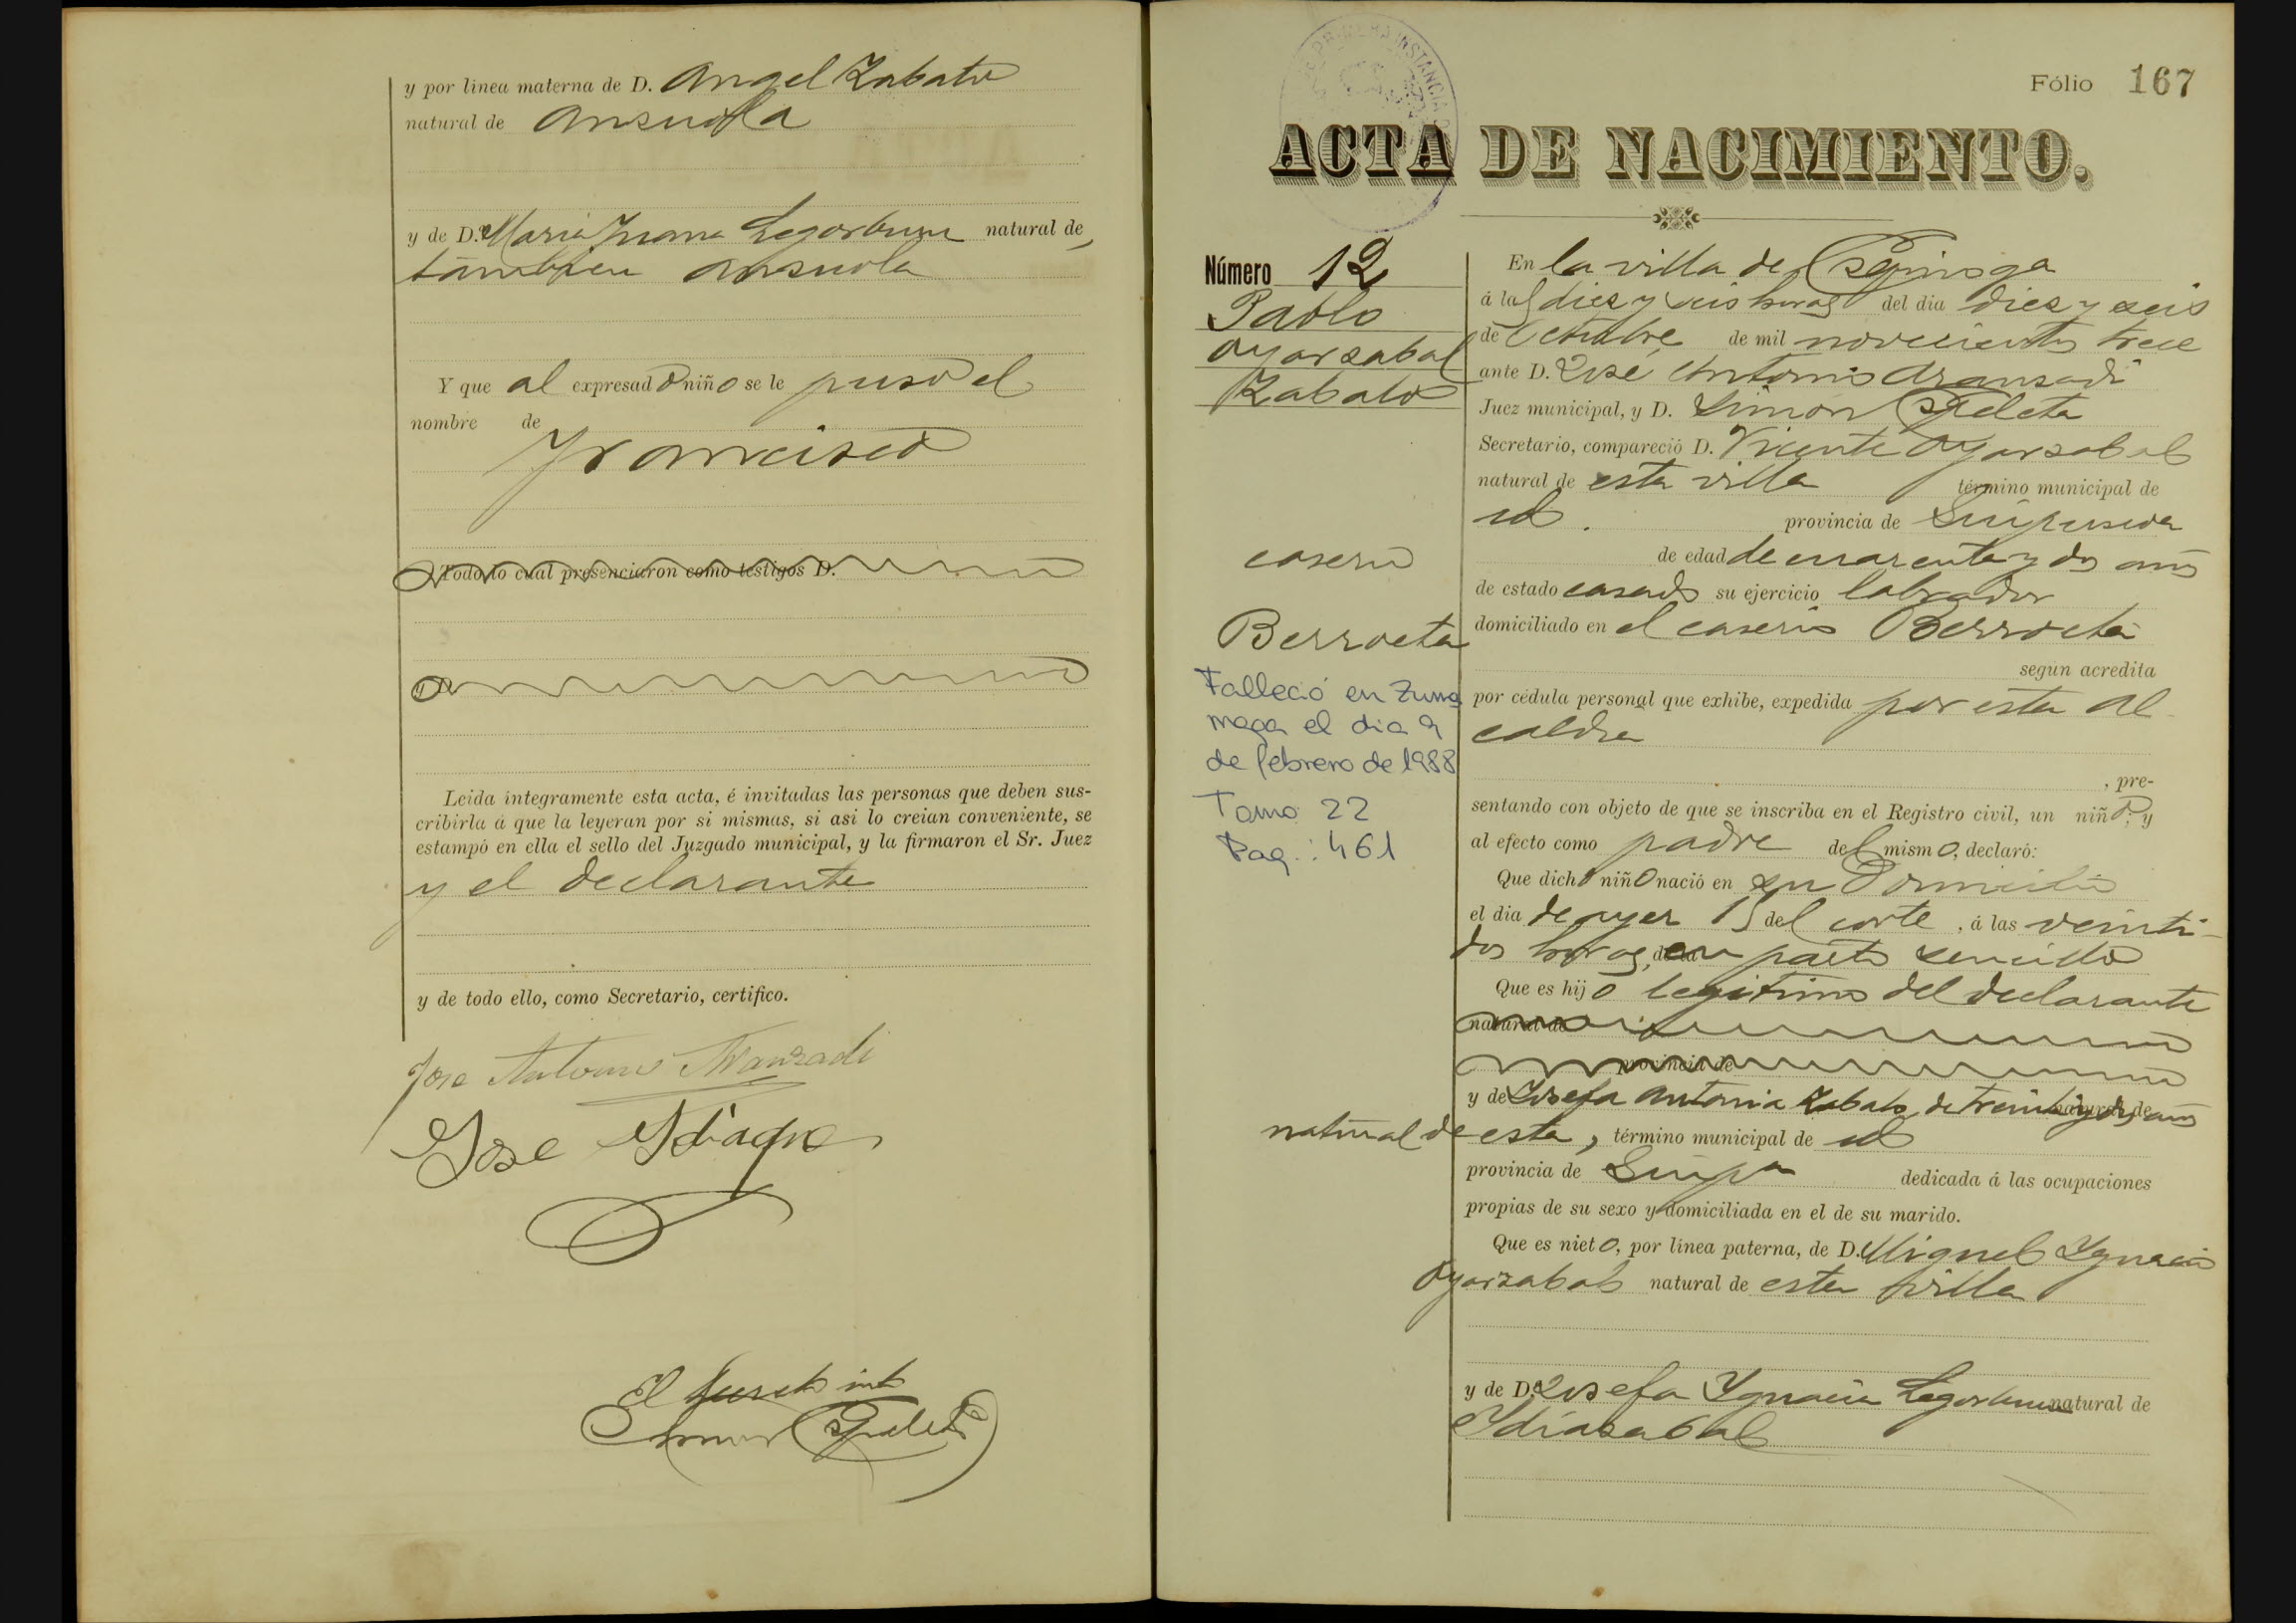 y por línea materna de D. Angel Zabalo
natural de Ansuola
y de D.ª Maria Juana Legorburu natural de
tambien Ansuola
Y que al expresado niño se le puso el
nombre de
Francisco
Todo lo cual presenciaron como testigos D.
Leida íntegramente esta acta, é invitadas las personas que deben sus-
cribirla á que la leyeran por si mismas, si asi lo creian conveniente, se
estampó en ella el sello del Juzgado municipal, y la firmaron el Sr. Juez
y el declarante
y de todo ello, como Secretario, certifico.
Jose Antonio Aranzadi
Jose Idiaquez
El Secreto into
Simon Egileta
Fólio 167
ACTA DE NACIMIENTO.
Número 12
Pablo
Oyarzabal
Zabalo
caserio
Berroeta
Falleció en Zuma
rraga el dia 9
de febrero de 1988
Tomo: 22
Pag.: 461
En la villa de Ezquioga
á las diez y seis horas del dia diez y seis
de Octubre de mil novecientos trece
ante D. José Antonio Aranzadi
Juez municipal, y D. Simón Egileta
Secretario, compareció D. Vicente Oyarzabal
natural de esta villa término municipal de
id. provincia de Guipuscoa
de edad de cuarenta y dos años
de estado casado su ejercicio labrador
domiciliado en el caserio Berroeta
según acredita
por cédula personal que exhibe, expedida por esta Al
caldia
, pre-
sentando con objeto de que se inscriba en el Registro civil, un niño, y
al efecto como padre del mismo, declaró:
Que dicho niño nació en su Domicilio
el dia de ayer 15 del corte, á las veinti-
dos horas, en parto sencillo
Que es hijo legitimo del declarante
natural de
provincia de
y de Josefa Antonia Zabalo, de treinta y dos años
natural de esta, término municipal de id
provincia de Guipª dedicada á las ocupaciones
propias de su sexo y domiciliada en el de su marido.
Que es nieto, por línea paterna, de D. Miguel Ygnacio
Oyarzabal natural de esta villa
y de D.ª Josefa Ygnacia Legorburu natural de
Ydiazabal